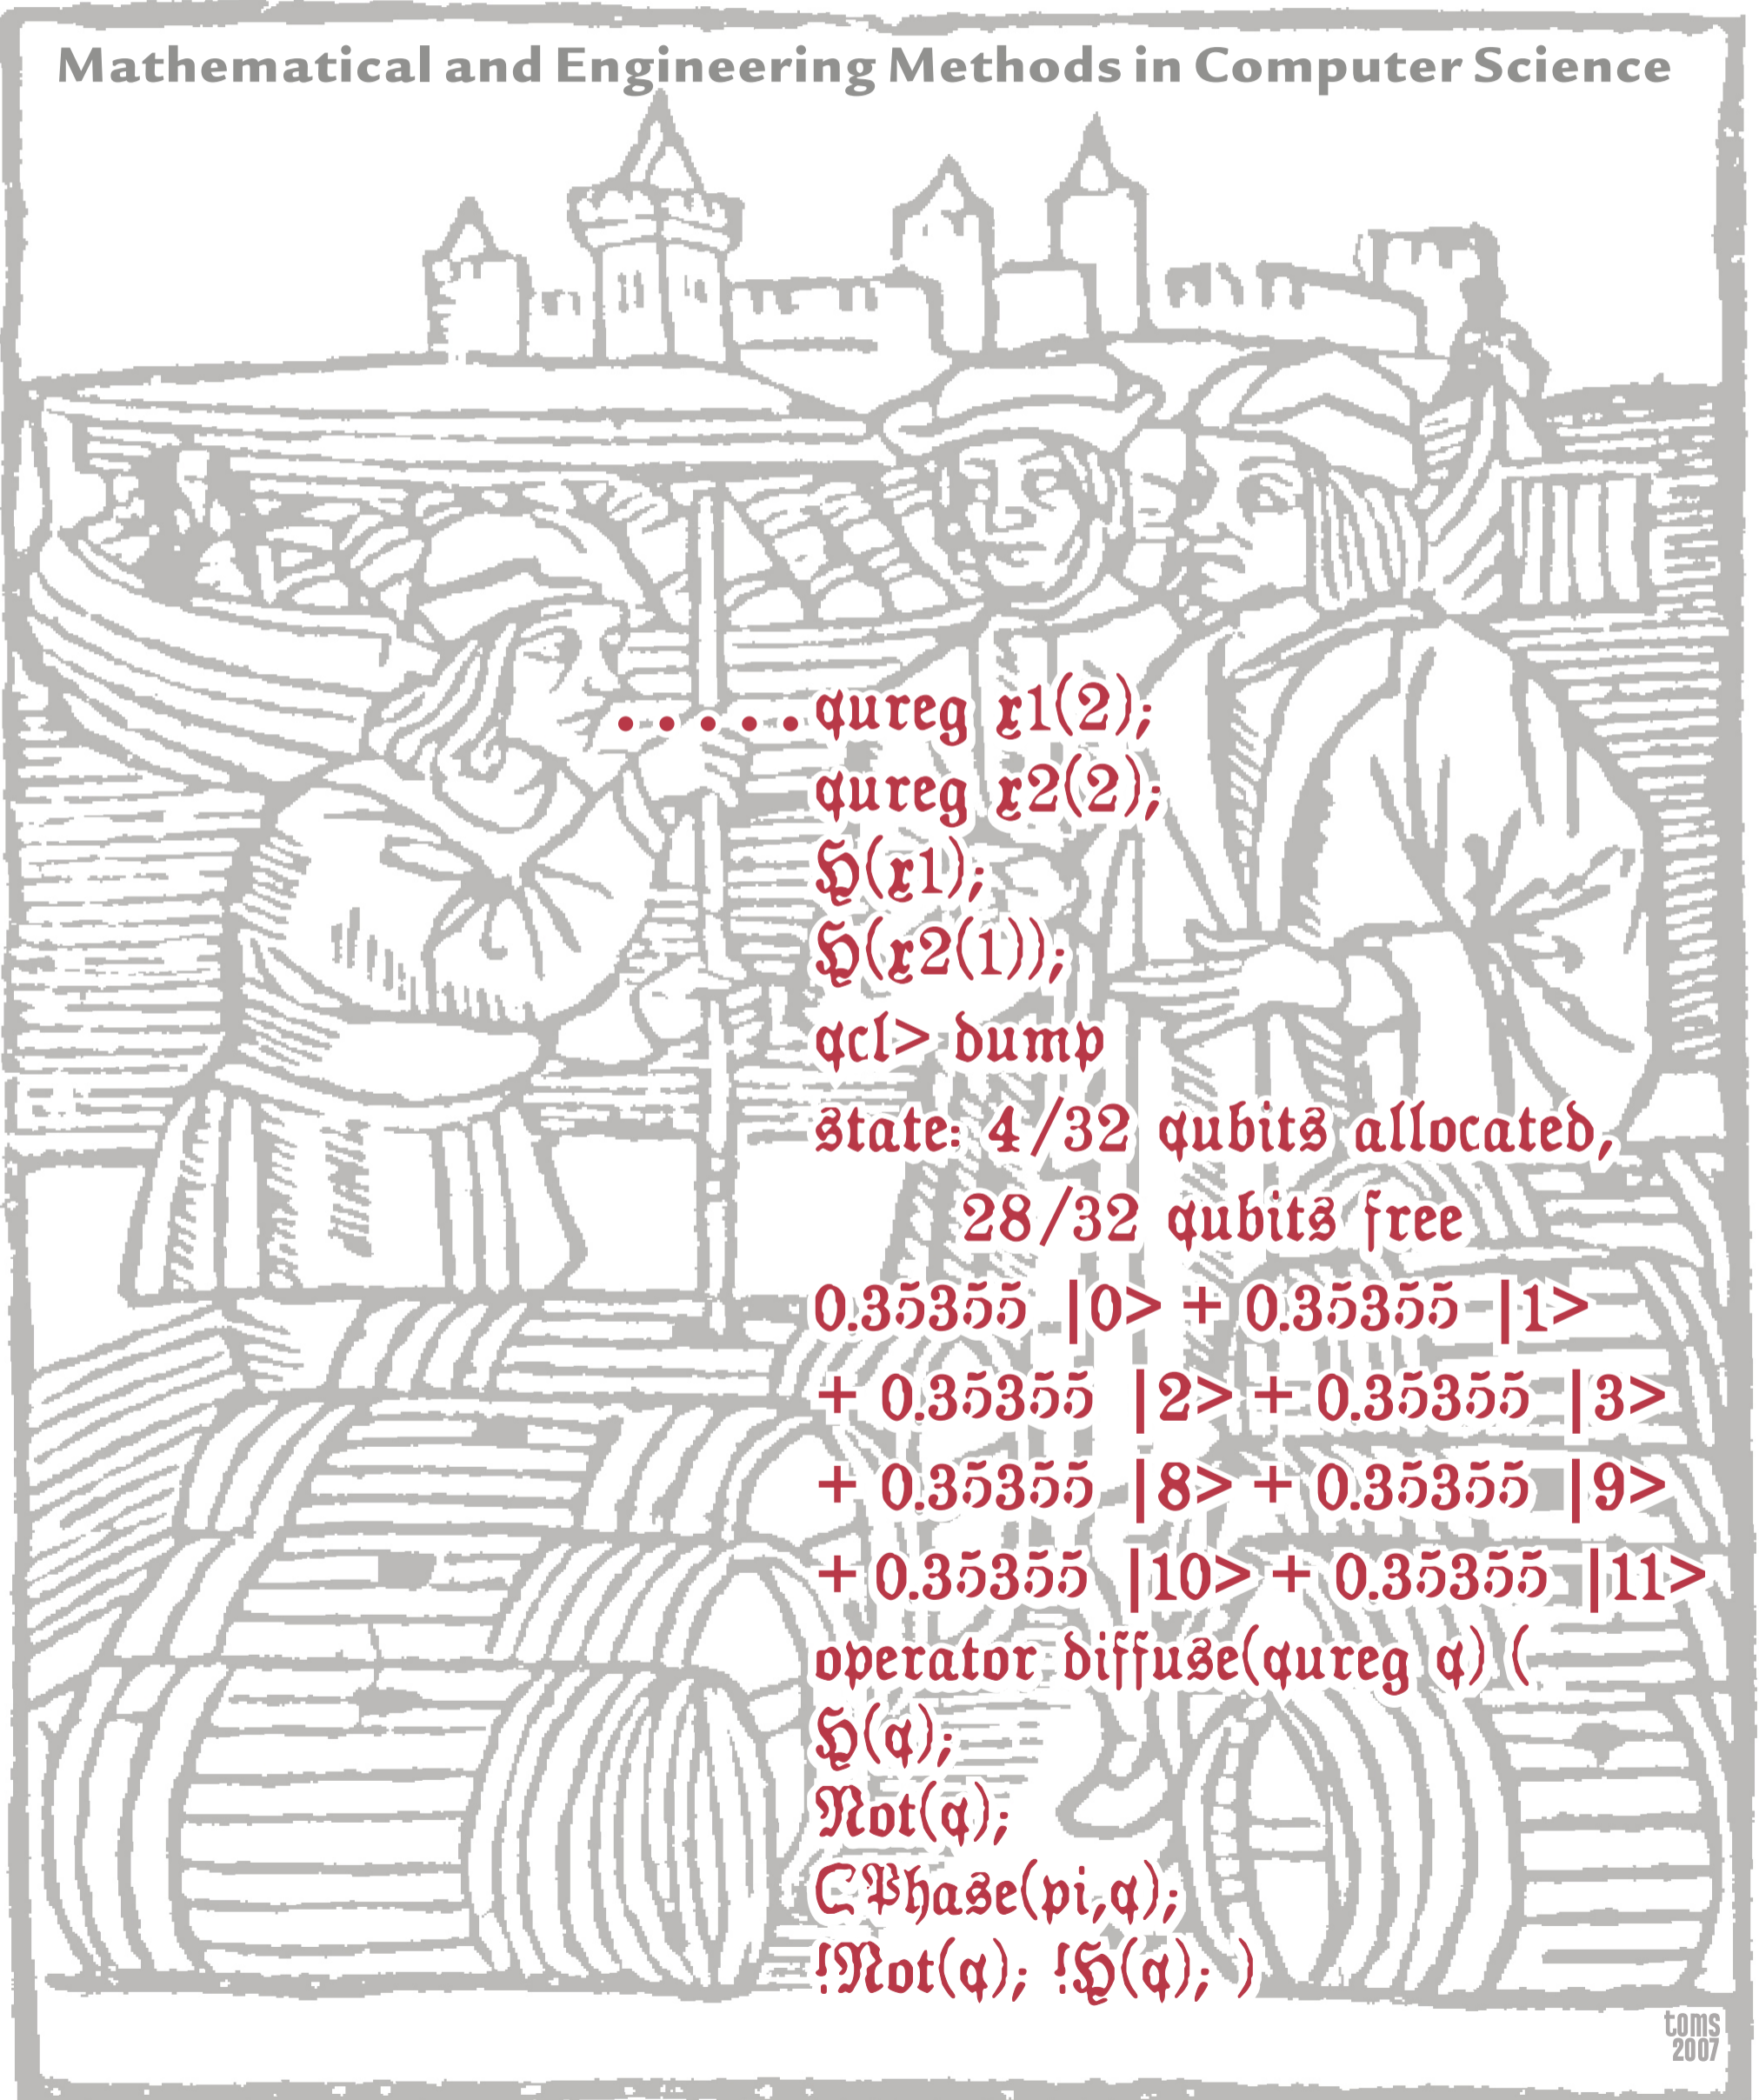 Mathematical and Engineering Methods in Computer Science
.....qureg x1(2);
qureg x2(2);
H(x1);
H(x2(1));
qcl> dump
state: 4/32 qubits allocated,
28/32 qubits free
0.35355 |0> + 0.35355 |1>
+ 0.35355 |2> + 0.35355 |3>
+ 0.35355 |8> + 0.35355 |9>
+ 0.35355 |10> + 0.35355 |11>
operator diffuse(qureg q) (
H(q);
Not(q);
CPhase(pi,q);
!Not(q); !H(q); )
toms
2007